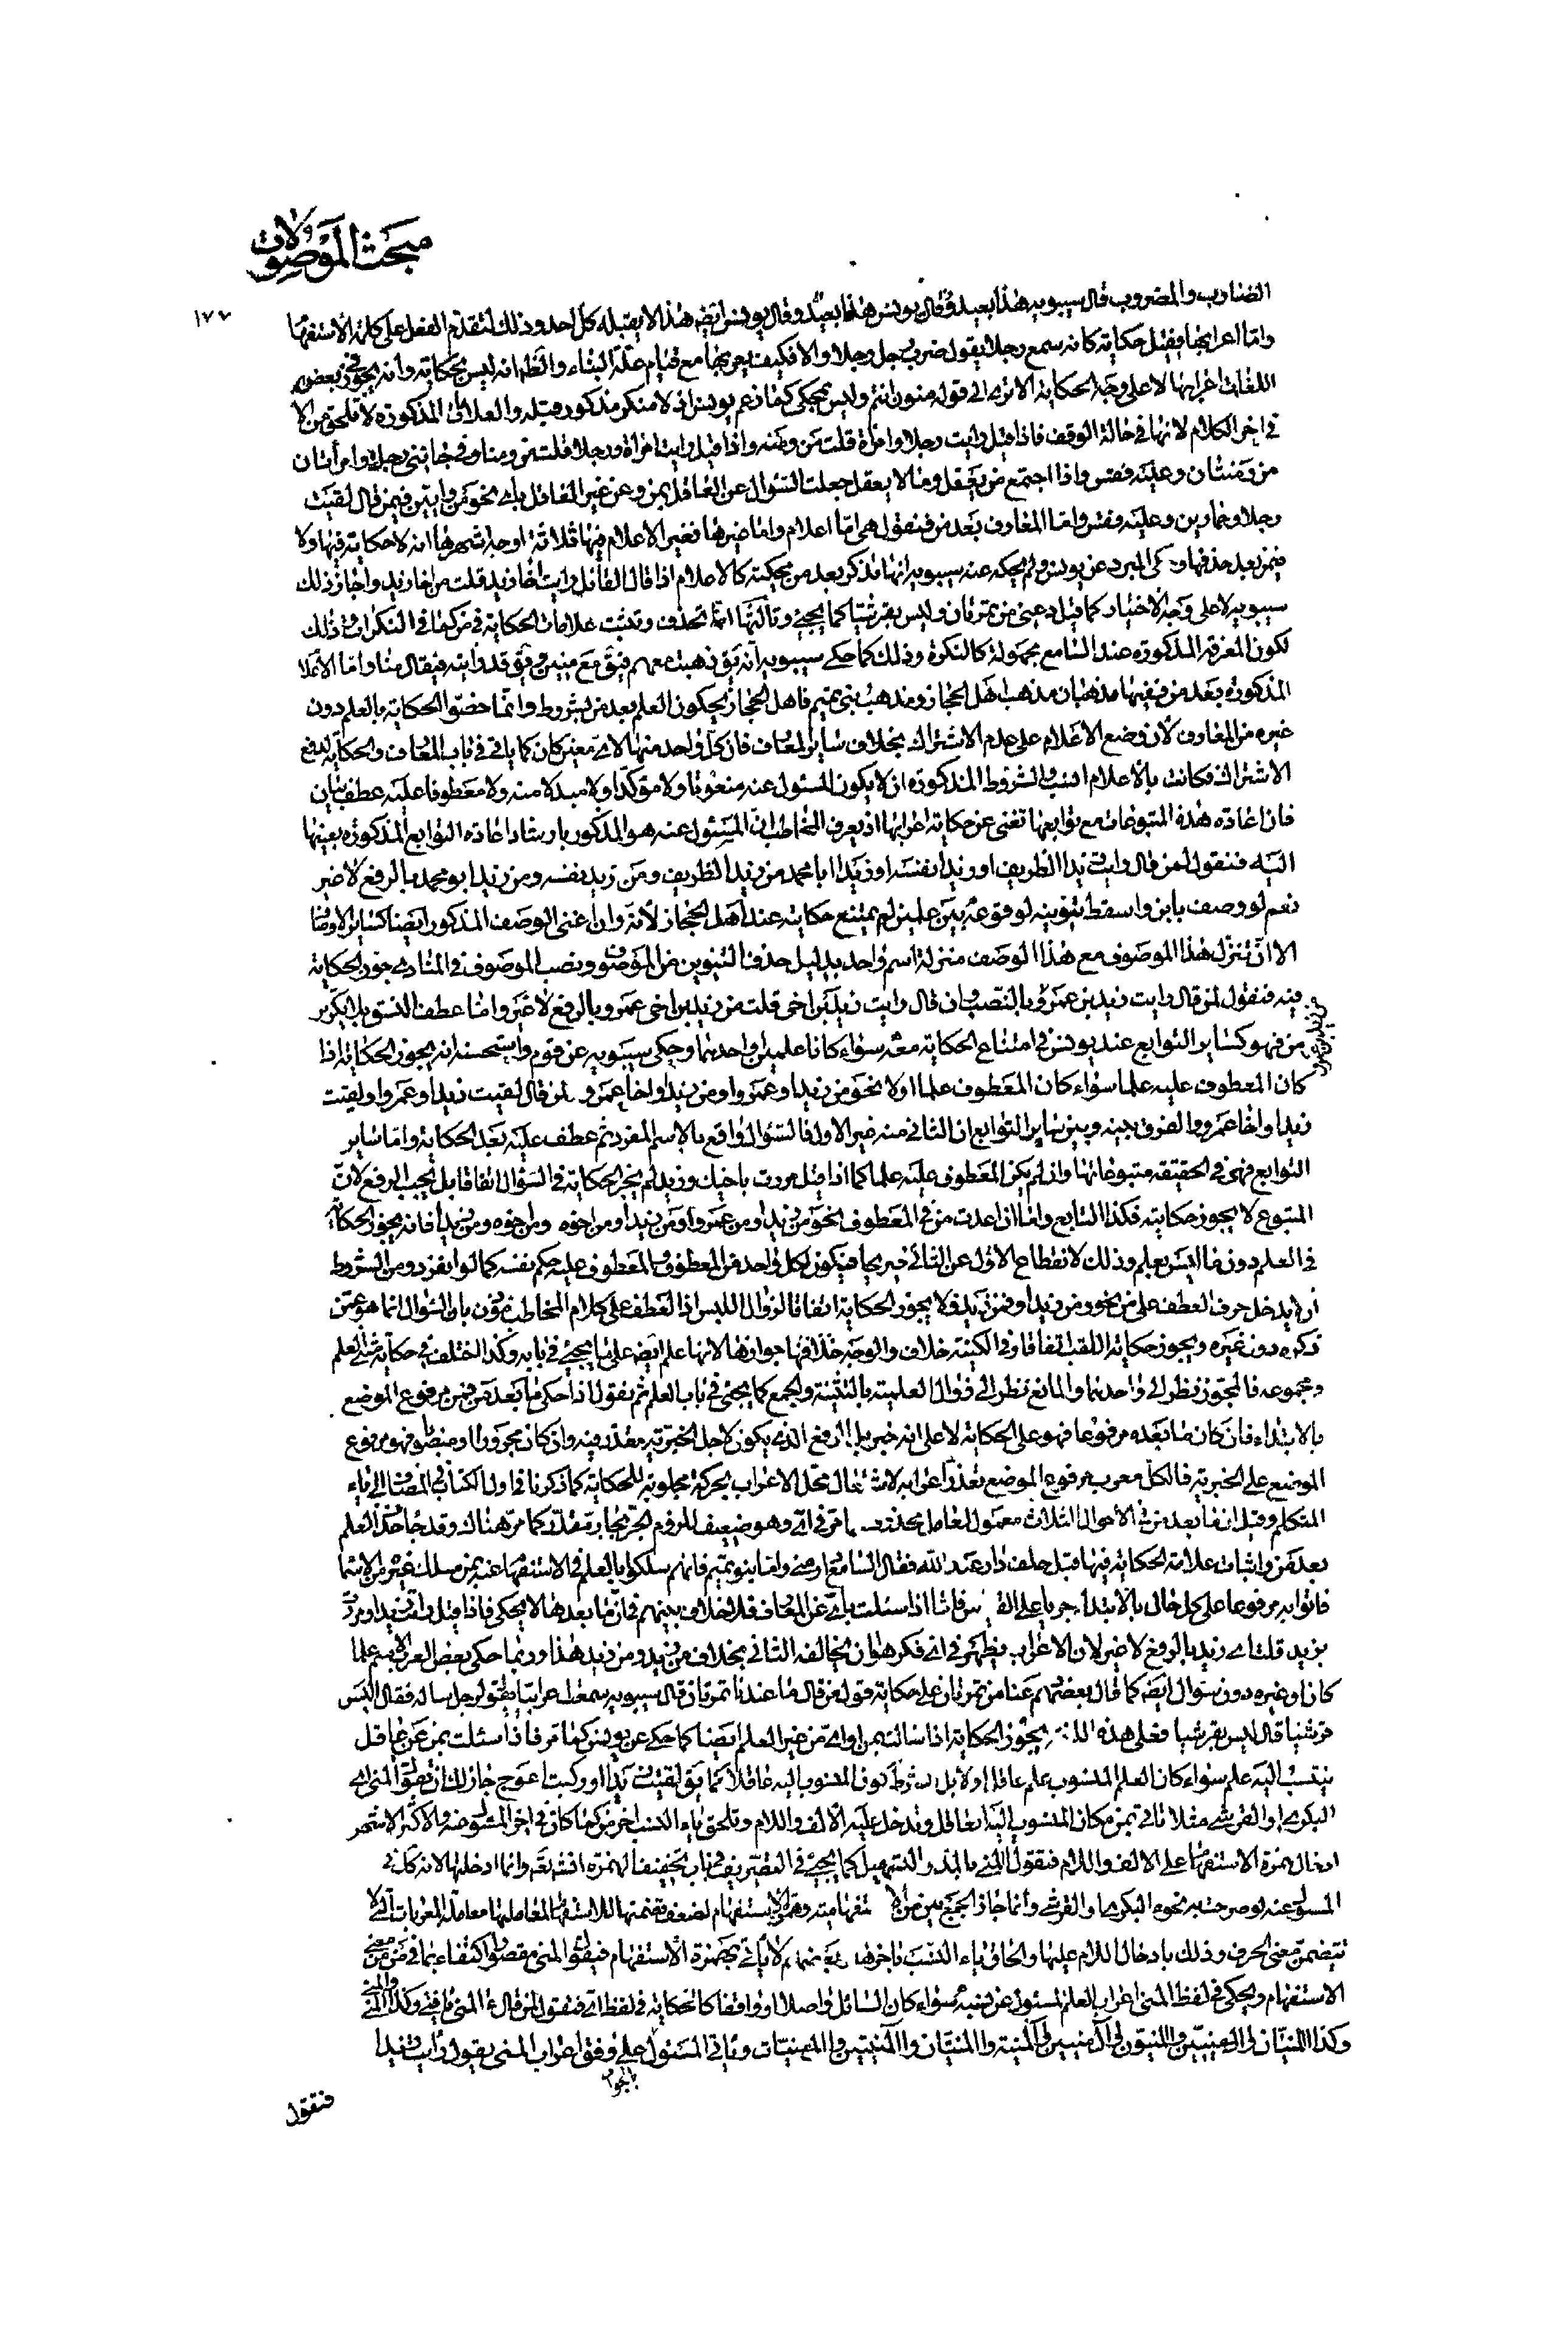 مبحث الموصولات
١٧٧
الضارب والمضروب قال سيبويه هذا بعيد وقال يونس هذا بعيد وقال يونس ايضه هذا لا يقبله كل احد وذلك لتقدم الفعل على كلمة الاستفهام
واما اعرابها فقيل حكاية كانه سمع رجلا يقول ضرب رجل رجلا والا فكيف يعربها مع قيام علة البناء والظ انه ليس بحكاية وانه يجوز في بعض
اللغات اعرابها لا على وجه الحكاية الا ترى الى قوله منون انتم وليس بمحكى كما زعم يونس اذ لا منكر مذكور قبله والعلامات المذكورة لا تلحق من الا
في اخر الكلام لانها في حالة الوقف فاذا قيل رايت رجلا وامرأة قلت من ومنه واذا قيل رايت امرأة ورجلا قلت من ومنا وفي جاءنى رجل وامرأتان
من ومنتان وعليه فقس واذا اجتمع من يعقل وما لا يعقل جعلت السئوال عن العاقل بمن وعن غير العاقل باى نحو من وايين فيمن قال لقيت
رجلا وحمارين وعليه فقس واما المعارف بعد من فنقول هى اما اعلام واما غيرها فغير الاعلام فيها ثلاثة اوجه اشهرها انه لا حكاية فيها ولا
فيمن بعد حذفها وحكى المبرد عن يونس ولم يحكه عنه سيبويه انها تذكر بعد من محكية كالاعلام اذا قال القائل رايت اخا زيد قلت من اخا زيد واجاز ذلك
سيبويه لا على وجه الاختيار كما قيل دعنى من تمرتان وليس بقرشيا كما يجيئ وثالثها انها تحذف وتثبت علامات الحكاية في من كما في النكرات وذلك
لكون المعرفة المذكورة عند السامع مجهولة كالنكرة وذلك كما حكى سيبويه انه يق ذهبت معهم فيق مع منين ويق قد رايته فيقال منا واما الاعلام
المذكورة بعد من ففيها مذهبان مذهب اهل الحجاز ومذهب بنى تميم فاهل الحجاز يحكون العلم بعد من بشروط وانما خصوا الحكاية بالعلم دون
غيره من المعارف لان وضع الاعلام على عدم الاشتراك بخلاف ساير المعارف فان كل واحد منها لاى معين كان كما ياتى في باب المعارف والحكاية لدفع
الاشتراك فكانت بالاعلام انسب والشروط المذكورة ان لا يكون المسئول عنه منعوتا ولا مؤكدا ولا مبدلا منه ولا معطوفا عليه عطف بيان
فان اعادة هذه المتبوعات مع توابعها تغنى عن حكاية اعرابها اذ يعرف المخاطب ان المسئول عنه هو المذكور بارشاد اعادة التوابع المذكورة بعينها
اليه فتقول لمن قال رايت زيدا الظريف او زيدا نفسه او زيدا ابا محمد من زيد الظريف ومن زيد نفسه ومن زيد ابو محمد بالرفع لا غير
نعم لو وصف بابن واسقط تنوينه لوقوعه بين علمين لم يمتنع حكايته عند اهل الحجاز لانه وان اغنى الوصف المذكور ايضا كساير الاوصاف
الا ان تنزل هذا الموصوف مع هذا الوصف منزلة اسم واحد بدليل حذف التنوين من الموصوف ونصب الموصوف في المنادى جوز الحكاية
فيه فتقول لمن قال رايت زيد بن عمرو من زيد بن عمرو بالنصب وان قال رايت زيدا ابن اخى عمرو قلت من زيد ابن اخى عمرو بالرفع لا غير واما عطف النسق بلا تكرير
من فهو كساير التوابع عند يونس في امتناع الحكاية معه سواء كانا علمين او احدهما وحكى سيبويه عن قوم واستحسنه انه يجوز الحكاية اذا
كان المعطوف عليه علما سواء كان المعطوف علما اولا نحو من زيدا وعمروا ومن زيدا واخا عمرو لمن قال لقيت زيدا وعمروا ولقيت
زيدا واخا عمرو والفرق بينه وبين ساير التوابع ان الثانى منه غير الاول فالسئوال واقع بالاسم المفرد ثم عطف عليه بعد الحكاية واما ساير
التوابع فهى في الحقيقة متبوعاتها وان لم يكن المعطوف عليه علما كما اذا قيل مررت باخيك وزيد لم يجز الحكاية في السئوال اتفاقا بل يجب الرفع لان
المتبوع لا يجوز حكايته فكذا التابع واما ان اعدت من في المعطوف نحو من زيدا ومن عمروا ومن زيدا ومن اخوه ومن اخوه ومن زيدا فانه يجوز الحكاية
في العلم دون ما ليس بعلم وذلك لانقطاع الاول عن الثانى فيكون لكل واحد من المعطوف والمعطوف عليه حكم نفسه كما لو انفرد ومن الشروط
ان لا يدخل حرف العطف على من نحو ومن زيد او فمن زيد فلا يجوز الحكاية اتفاقا لزوال اللبس اذ العطف على كلام المخاطب مؤذن بان السئوال انما هو عمن
ذكره دون غيره ويجوز حكاية اللقب اتفاقا وفي الكنية خلاف والوجه جوازها لانها علم ايضه على ما يجيئ في بابه وكذا اختلف في حكاية مثنى العلم
ومجموعه فالمجوز نظر الى واحدهما والمانع نظر الى زوال العلمية بالتثنية والجمع كما يجئ في باب العلم ثم نقول اذا حكى ما بعد من فمن مرفوع الموضع
بالابتداء فان كان ما بعده مرفوعا فهو على الحكاية لا على انه خبر بل الرفع الذى يكون لاجل الخبرية مقدر فيه وان كان مجرورا او منصوبا فهو مرفوع
الموضع على الخبرية فالكل معرب مرفوع الموضع تعذر اعرابه لاشتغال محل الاعراب بحركة مجلوبة للحكاية كما ذكرنا في اول الكتاب في المضاف الى ياء
المتكلم وقيل ان ما بعد من في الاحوال الثلاث معمول لعامل محذوف كما مر في اى وهو ضعيف للزوم الجر بجار مقدر كما مر هناك وقد جاء حذف العلم
بعد من واثبات علامة الحكاية فيها قيل خلف دار عبد الله فقال السامع دار منى واما بنو تميم فانهم سلكوا بالعلم في الاستفهام عنه بمن مسلك غيره من الاسماء
فاتوا به مرفوعا على كل حال بالابتداء جريا على القياس فاما اذا سئلت باى عن المعارف فلا خلاف بينهم في ان ما بعدها لا يحكى فاذا قيل رايت زيدا ومررت
بزيد قلت اى زيد بالرفع لا غير لان الاعراب يظهر في اى فكرهوا ان يخالفه الثانى بخلاف من زيدا ومن زيد هذا وربما حكى بعض العرب الاسم علما
كان او غيره دون سئوال ايضه كما قال بعضهم دعنا من تمرتان على حكاية قول من قال ما عندنا تمرتان قال سيبويه سمعت اعرابيا يقول لرجل ساله فقال اليس
قرشيا قال ليس بقرشيا فعلى هذه اللغة يجوز الحكاية اذا سالت بمن او اى من غير العلم ايضا كما حكى عن يونس كما مر فاذا سئلت بمن عن عاقل
ينتسب اليه علم سواء كان العلم المنسوب علم عاقل اولا بل بشرط كون المنسوب اليه عاقلا كما يق لقيت زيدا او ركبت اعوج جاز لك ان تقول المنى اى
البكرى او القرشى مثلا تاتى بمن مكان المنسوب اليه العاقل وتدخل عليه الالف واللام وتلحق ياء النسب اخر من كما كان في اخر المسئول عنه والاكثر الاشهر
ادخال همزة الاستفهام على الالف واللام فتقول المنى بالمد او التسهيل كما يجيئ في التصريف في باب تخفيف الهمزة انشئه تعه وانما ادخلتها لانه كان في
المسئول عنه لو صرحت به نحو البكرى او القرشى وانما جاز الجمع بين من الاستفهامية وهمزة الاستفهام لضعف تضمنها للاستفهام لمعاملتها معاملة المعربات التى لا
تتضمن معنى الحرف وذلك بادخال اللام عليها والحاق ياء النسب باخرها وبعضهم لا ياتى بهمزة الاستفهام فيقول المنى مقصورا اكتفاء بما في من من معنى
الاستفهام ويحكى في لفظ المنى اعراب العلم المسئول عن نسبه سواء كان السائل واصلا او واقفا كالحكاية في لفظ اى فتقول لمن قال جاءنى زيد المنى وكذا المنى والمنى
وكذا المنيان والمنيين والمنيون والمنيين والمنية والمنيتان والمنيتين والمنيات وياتى المسئول بالجواب على وفق اعراب المنى يقول رايت زيدا
فتقول